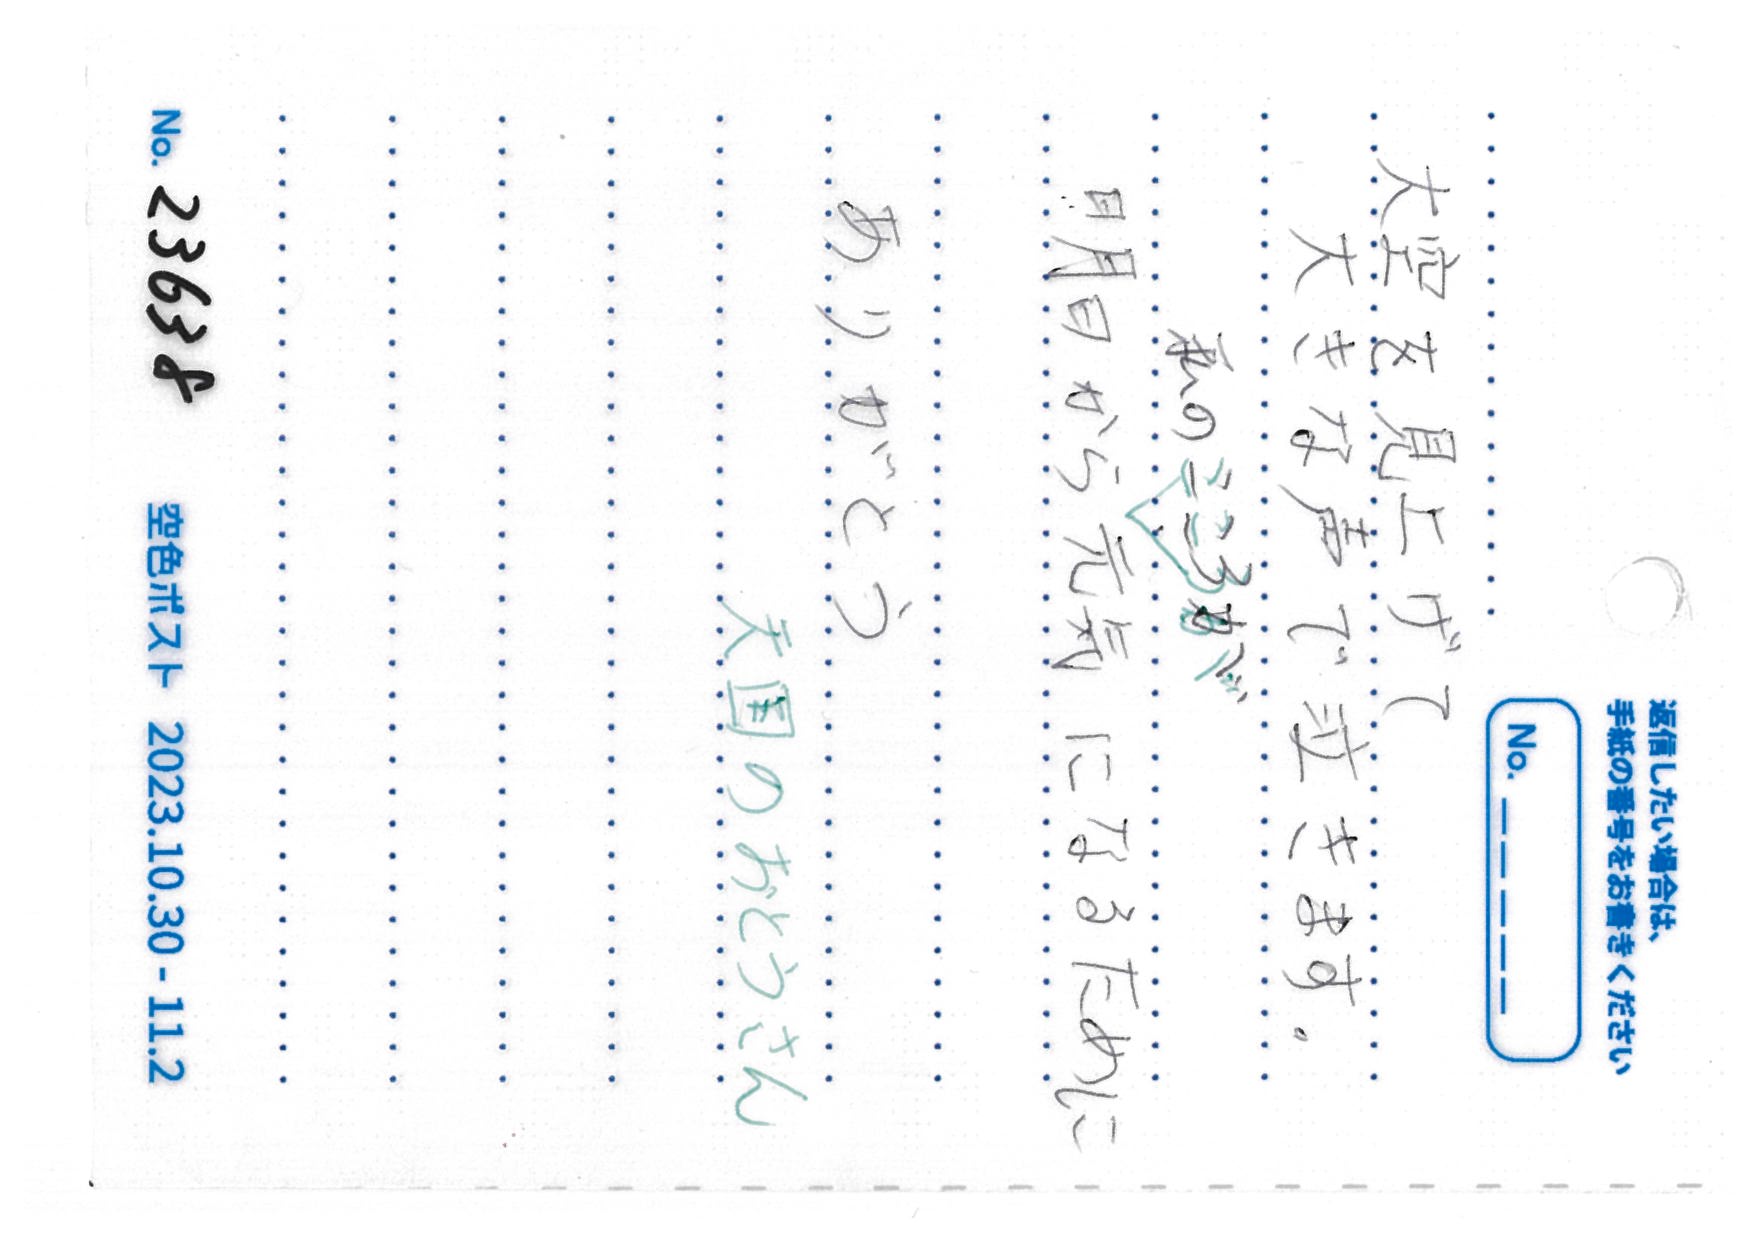 返信したい場合は、
手紙の番号をお書きください
No.
大空を見上げて
大きな声で泣きます。
私のこころが
明日から元気になるために
ありがとう
天国のおとうさん
No. 23638
空色ポスト 2023.10.30 - 11.2